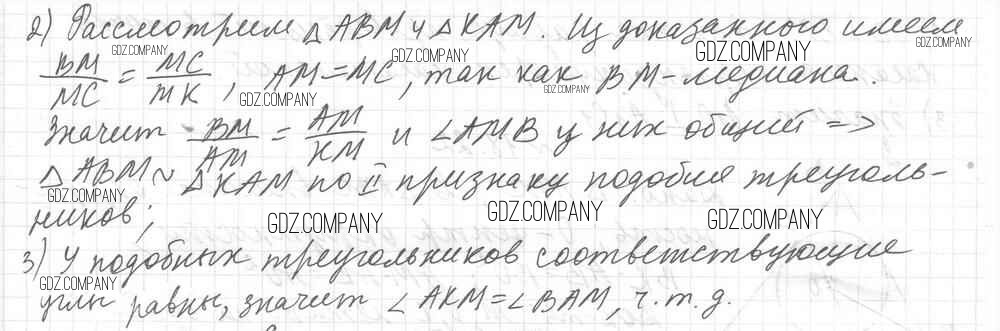 2) Рассмотрим △ABM и △KAM. Из доказанного имеем
BM/MC = MC/MK, AM=MC, так как BM-медиана.
Значит BM/AM = AM/KM и ∠AMB у них общий =>
△ABM ~ △KAM по II признаку подобия треуголь-
ников;
3) У подобных треугольников соответствующие
углы равны, значит ∠AKM=∠BAM, ч.т.д.
GDZ.COMPANY
GDZ.COMPANY
GDZ.COMPANY
GDZ.COMPANY
GDZ.COMPANY
GDZ.COMPANY
GDZ.COMPANY
GDZ.COMPANY
GDZ.COMPANY
GDZ.COMPANY
GDZ.COMPANY